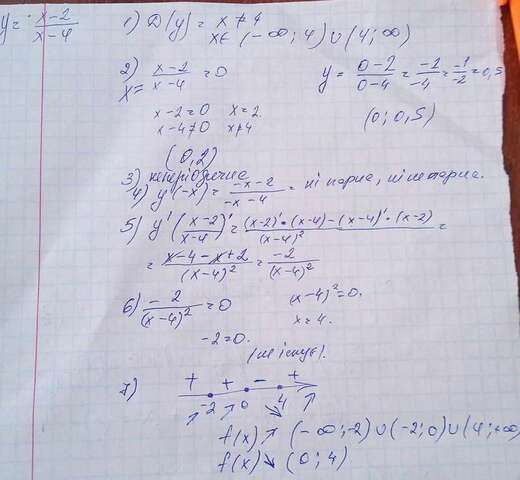 y = x-2/x-4
1) D(y) = x ≠ 4
x ∈ (-∞; 4) ∪ (4; ∞)
2) x-2/x-4 = 0
x =
y = 0-2/0-4 = -2/-4 = -1/-2 = 0,5
x-2=0 x=2.
x-4≠0 x≠4
(0; 0,5)
(0,2)
3) неперіодична
4) y(-x) = -x-2/-x-4 = ні парна, ні непарна.
5) y' (x-2/x-4)' = (x-2)'·(x-4)-(x-4)'·(x-2)/(x-4)² =
= x-4-x+2/(x-4)² = -2/(x-4)²
6) -2/(x-4)² = 0 (x-4)²=0.
x=4.
-2=0.
(не існує).
7) + + - +
-2 0 4
↗ ↗ ↘ ↗
f(x)↗ (-∞;-2)∪(-2;0)∪(4;+∞)
f(x)↘ (0;4)